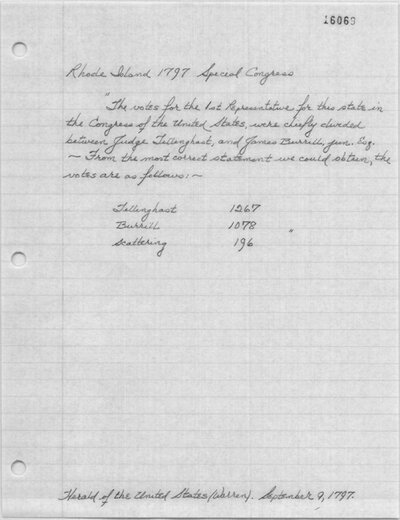 16069
Rhode Island 1797 Special Congress
"The votes for the 1st Representative for this state in
the Congress of the United States, were chiefly divided
between Judge Tillinghast, and James Burrill, jun. Esq.
~ From the most correct statement we could obtain, the
votes are as follows: ~
Tillinghast 1267
Burrill 1078
scattering 196 "
Herald of the United States (Warren). September 9, 1797.